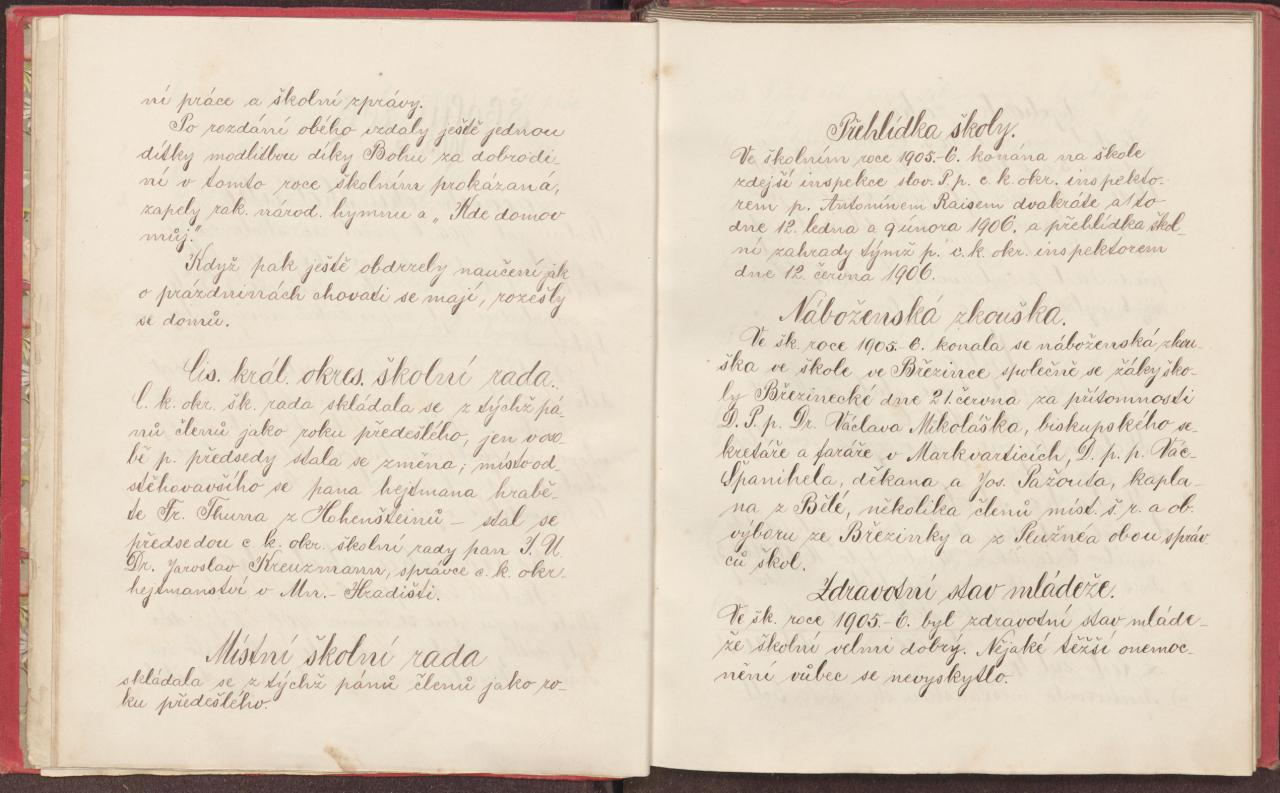 ní práce a školní zprávy.
Po rozdání obého vzdaly ještě jednou
dítky modlitbou díky Bohu za dobrodi-
ní v tomto roce školním prokázaná,
zapěly rak. národ. hymnu a „Kde domov
můj."
Když pak ještě obdržely naučení jak
o prázdninách chovati se mají, rozešly
se domů.
Cís. král. okres. školní rada.
C. k. okr. šk. rada skládala se z týchž pá-
nů členů jako roku předešlého, jen v oso-
bě p. předsedy stala se změna; místo od-
stěhovavšího se pana hejtmana hrabě-
te Fr. Thurna z Hohenšteinů – stal se
předsedou c. k. okr. školní rady pan J. U.
Dr. Jaroslav Kreuzmann, správce c. k. okr.
hejtmanství v Mn.- Hradišti.
Místní školní rada
skládala se z týchž pánů členů jako ro-
ku předešlého.
Přehlídka školy.
Ve školním roce 1905.-6. konána na škole
zdejší inspekce slov. P. p. c. k. okr. inspekto-
rem p. Antonínem Raisem dvakráte a to
dne 12. ledna a 9 února 1906. a přehlídka škol-
ní zahrady týmž p. c. k. okr. inspektorem
dne 12. června 1906.
Náboženská zkouška.
Ve šk. roce 1905.-6. konala se náboženská zkou-
ška ve škole ve Březince společně se žáky ško-
ly Březinecké dne 21. června za přítomnosti
D. P. p. Dr. Václava Mikoláška, biskupského se-
kretáře a faráře v Markvarticích, D. p. p. Vác.
Španihela, děkana a Jos. Pažouta, kapla-
na z Bělé, několika členů míst. š. r. a ob.
výboru ze Březinky a z Plužné a obou správ-
ců škol.
Zdravotní stav mládeže.
Ve šk. roce 1905.-6. byl zdravotní stav mláde-
že školní velmi dobrý. Nějaké těžší onemoc-
nění vůbec se nevyskytlo.